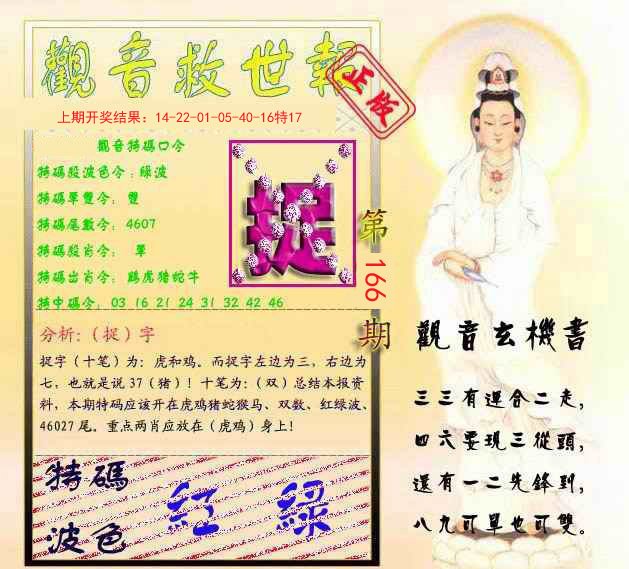 觀音救世報
正版
上期开奖结果：14-22-01-05-40-16特17
觀音特碼口令
特碼段波色令：綠波
特碼單雙令： 雙
特碼尾數令： 4607
特碼段肖令： 單
特碼出肖令： 鷄虎猪蛇牛
特中碼令： 03 16 21 24 31 32 42 46
捉
第166期
分析：（捉）字
捉字（十笔）为：虎和鸡。而捉字左边为三，右边为
七，也就是说 37（猪）！十笔为：（双）总结本报资
料，本期特码应该开在虎鸡猪蛇猴马、双数、红绿波、
46027 尾。重点两肖应放在（虎鸡）身上！
特碼
波色
紅 綠
觀音玄機書
三三有運合二走，
四六要現三從頭，
還有一二先鋒到，
八九可單也可雙。